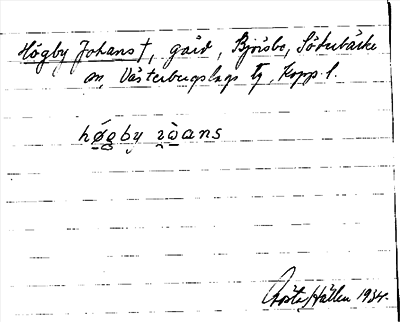 Högby Johans †, gård, Björsbo, Söderbärke
sn, Västerbergslags tg, Kopp. l.
högby ɿòans
Gösta Hallen 1934.